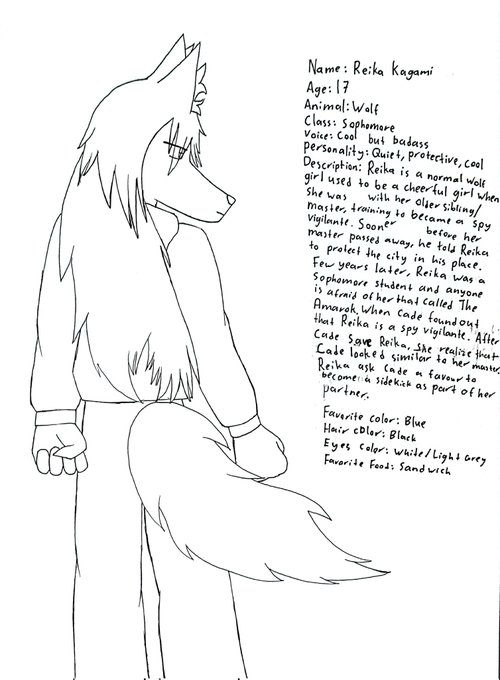 Name: Reika Kagami
Age: 17
Animal: Wolf
Class: Sophomore
Voice: Cool but badass
Personality: Quiet, protective, cool
Description: Reika is a normal wolf
girl used to be a cheerful girl when
she was with her older sibling/
master, training to become a spy
vigilante. Sooner before her
master passed away, he told Reika
to protect the city in his place.
Few years later, Reika was a
Sophomore student and anyone
is afraid of her that called The
Amarok. When Cade found out
that Reika is a spy vigilante. After
Cade save Reika, she realize that
Cade looked similar to her master.
Reika ask Cade a favour to
become a sidekick as part of her
partner.
Favorite color: Blue
Hair color: Black
Eyes color: White/Light Grey
Favorite Food: Sandwich